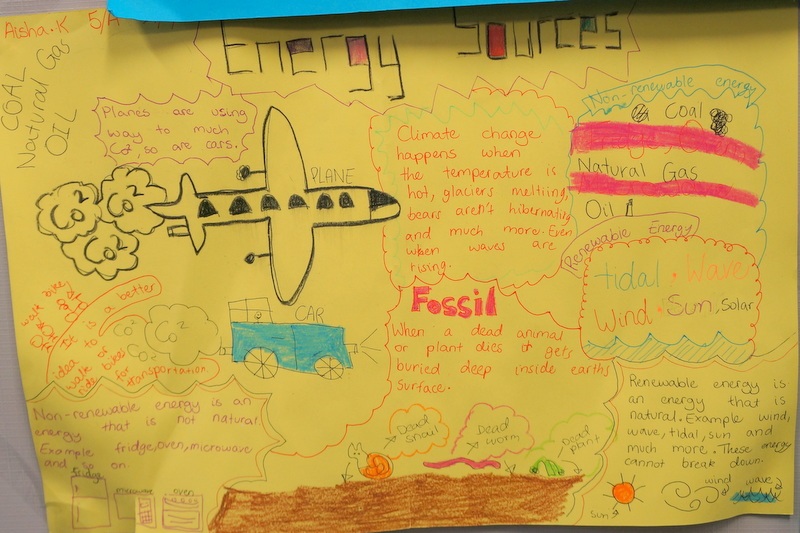 Energy Sources
Aisha.K 5/A
COAL
Natural Gas
OIL
Planes are using
way to much
Co², so are cars.
PLANE
Co²
Co²
Co²
Climate change
happens when
the temperature is
hot, glaciers meltiing,
bears aren't hibernating
and much more. Even
when waves are
rising.
Non-renewable energy
Coal
Natural Gas
Oil
Renewable Energy
tidal · Wave
Wind · Sun, Solar
walk bike
It is a better
idea
walk or
ride bike
for
transportation
Co²
CAR
Fossil
When a dead animal
or plant dies & gets
buried deep inside earths
surface.
Non-renewable energy is an
energy that is not natural
Example fridge, oven, microwave
and so on.
fridge
microwave
oven
Dead
snail
Dead
worm
Dead
plant
Renewable energy is
an energy that is
natural. Example wind,
wave, tidal, sun and
much more. These energy
cannot break down.
sun
wind
wave